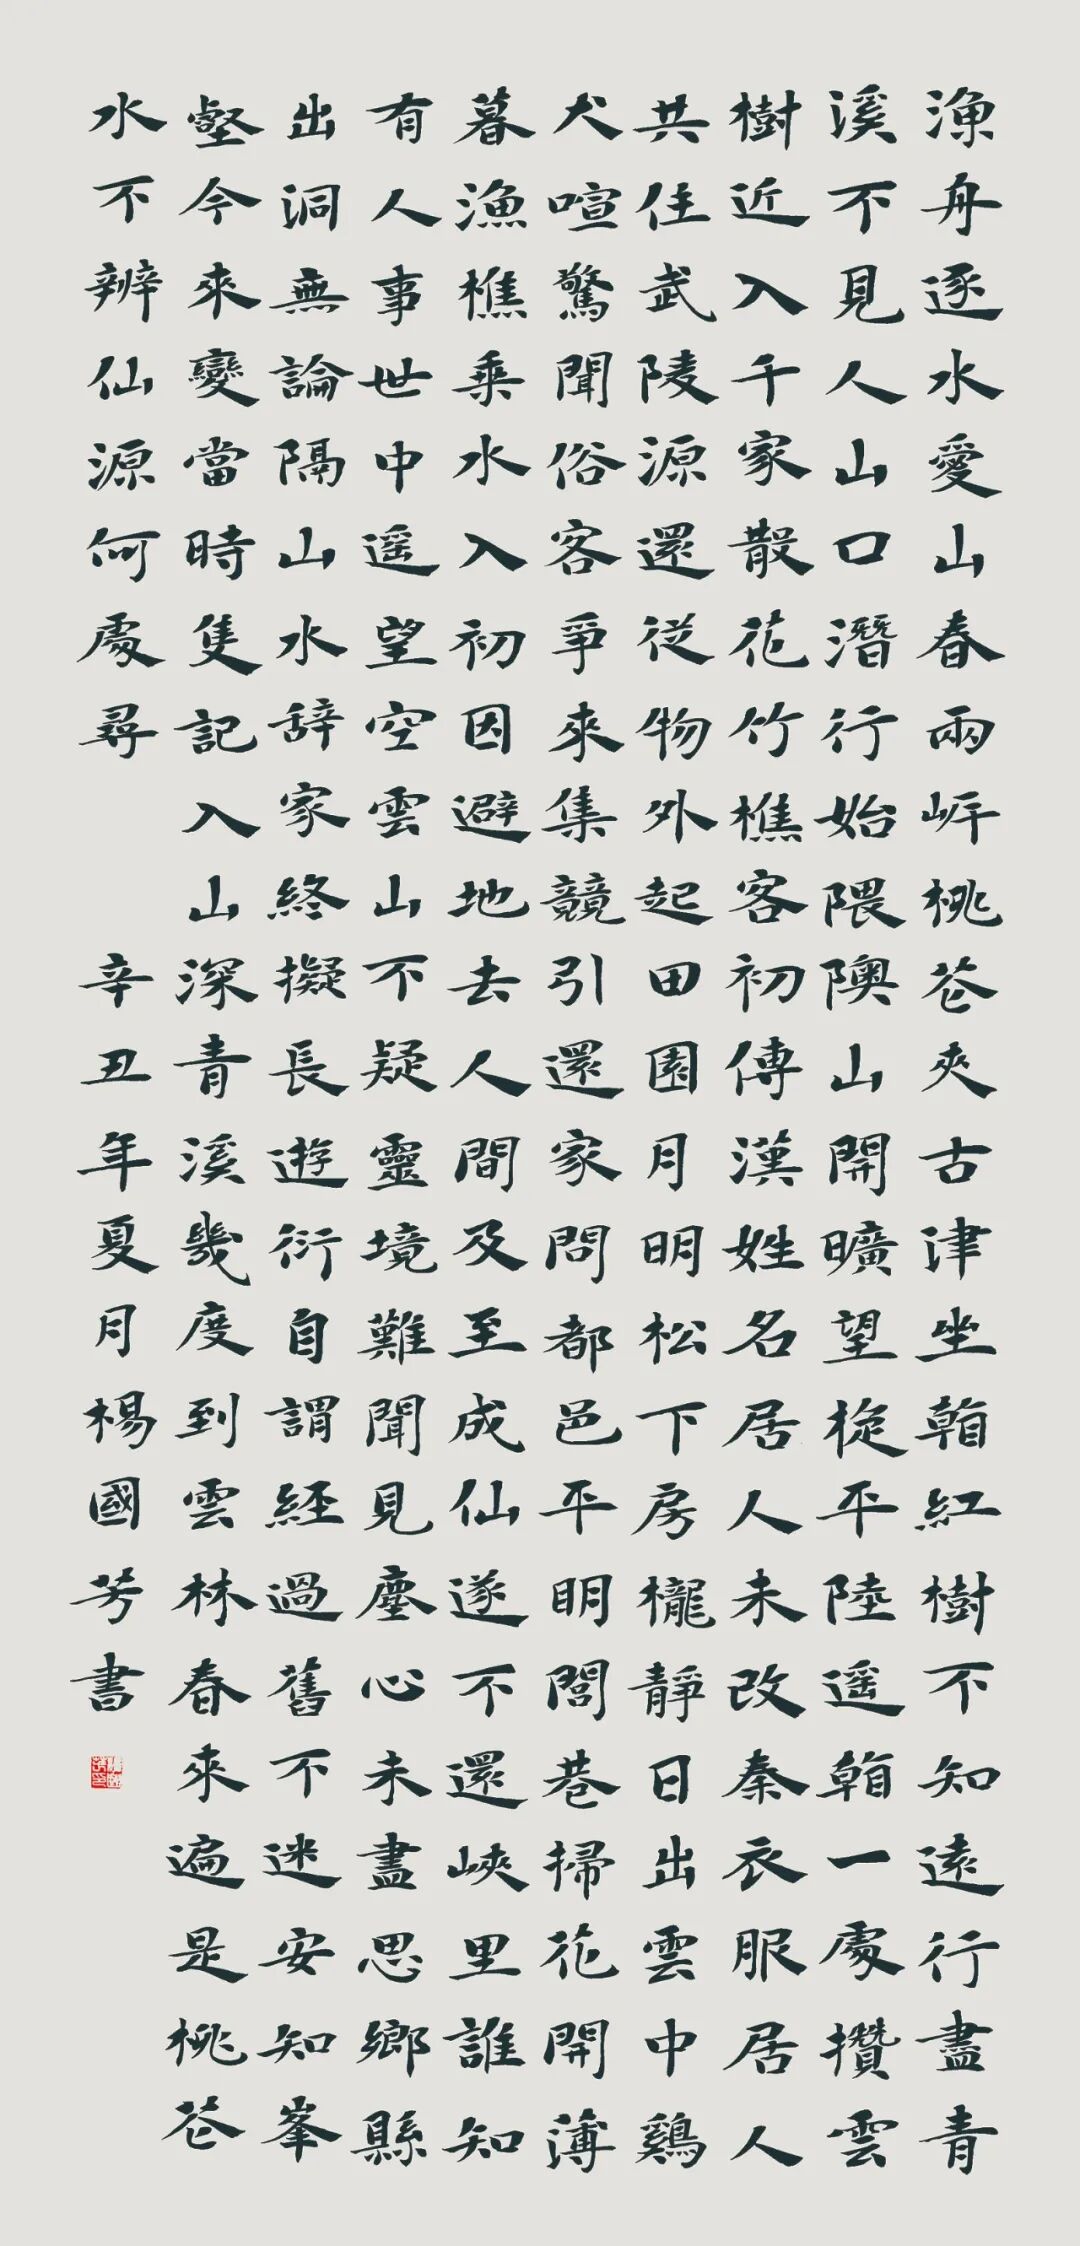 漁舟逐水愛山春兩岸桃花夾古津坐看紅樹不知遠行盡青
溪不見人山口潛行始隈隩山開曠望旋平陸遥看一處攢雲
樹近入千家散花竹樵客初傳漢姓名居人未改秦衣服居人
共住武陵源還從物外起田園月明松下房櫳靜日出雲中鷄
犬喧驚聞俗客爭來集競引還家問都邑平明閭巷掃花開薄
暮漁樵乘水入初因避地去人間及至成仙遂不還峽里誰知
有人事世中遥望空雲山不疑靈境難聞見塵心未盡思鄉縣
出洞無論隔山水辞家終擬長遊衍自謂經過舊不迷安知峯
壑今來變當時隻記入山深青溪幾度到雲林春來遍是桃花
水不辨仙源何處尋
辛丑年夏月楊國芳書